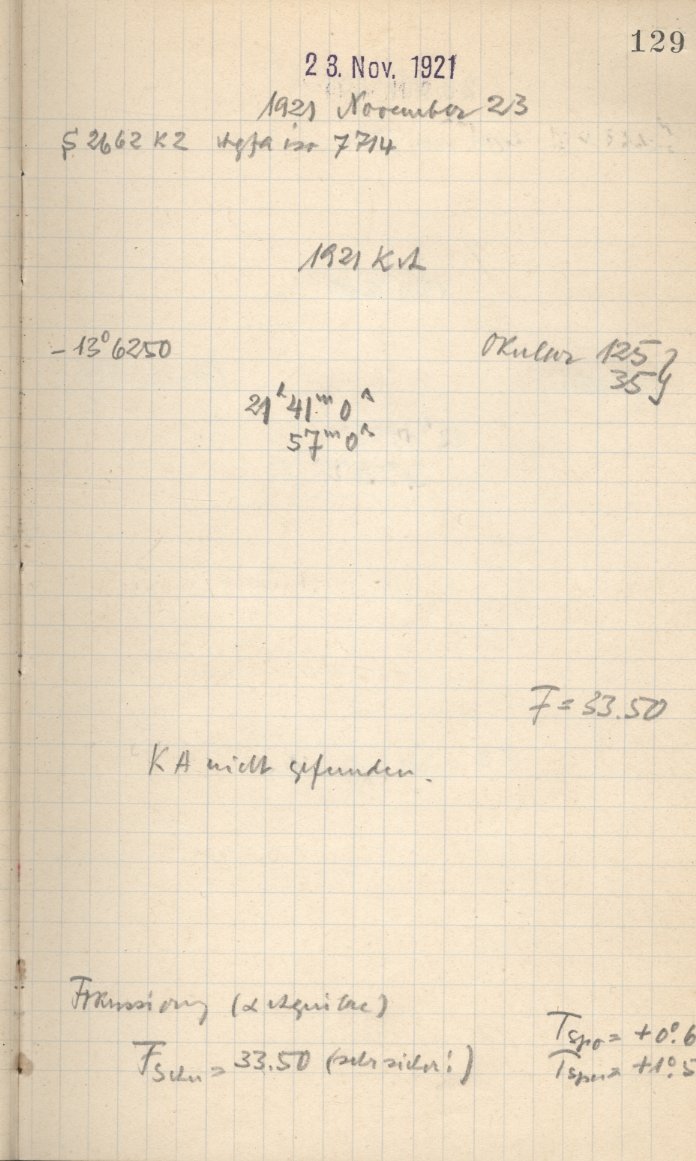 129
23. Nov. 1921
1921 November 23
S 2662 K2 Agfa iso 7714
1921 KA
-13° 6250
Okular 125
35
21ʰ 41ᵐ 0ˢ
57ᵐ 0ˢ
F = 33.50
KA nicht gefunden.
Fokussierung (α Aquilae)
F = 33.50 (sehr sicher!)
= +0°.6
= +1°.5